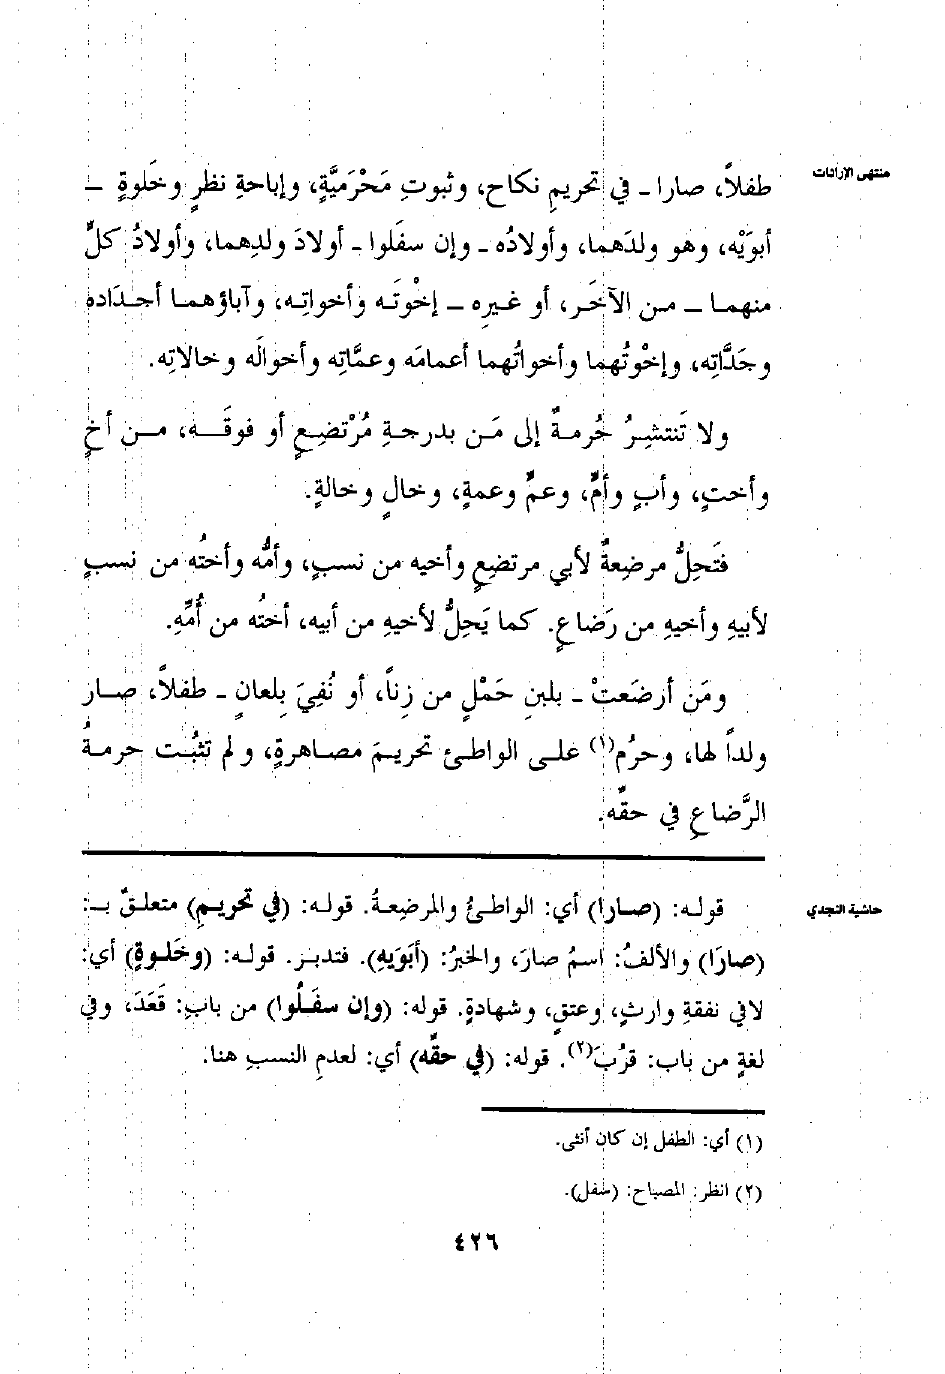 منتهى الإرادات
طفلاً، صارا ـ في تحريمِ نكاح، وثبوتِ مَحْرَميَّةٍ، وإباحةِ نظرٍ وخَلوةٍ ـ
أبوَيْه، وهو ولدَهما، وأولادُه ـ وإن سفَلوا ـ أولادَ ولدِهما، وأولادُ كلٍّ
منهما ـ من الآخَر، أو غيرِه ـ إخْوتَه وأخواتِه، وآباؤهما أجدَاده
وجَدَّاتِه، وإخْوتُهما وأخواتُهما أعمامَه وعمَّاتِه وأخوالَه وخالاتِه.
ولا تَنتشِرُ حُرمةٌ إلى مَن بدرجةِ مُرْتضِعٍ أو فوقَه، من أخٍ
وأختٍ، وأبٍ وأمٍّ، وعمٍّ وعمةٍ، وخالٍ وخالةٍ.
فتَحِلُّ مرضِعةٌ لأبي مرتضِعٍ وأخيه من نسبٍ، وأمُّه وأختُه من نسبٍ
لأبيهِ وأخيهِ من رَضاعٍ. كما يَحِلُّ لأخيهِ من أبيه، أختُه من أُمِّهِ.
ومَن أرضَعتْ ـ بلبنِ حَمْلٍ من زِناً، أو نُفِيَ بلعانٍ ـ طفلاً، صار
ولداً لها، وحرُم(١) على الواطئ تحريمَ مصاهرةٍ، ولم تثبُت حرمةُ
الرَّضاعِ في حقِّه.
حاشية النجدي
قوله: (صارا) أي: الواطئُ والمرضعةُ. قوله: (في تحريمِ) متعلقٌ بـ:
(صارَا) والألفُ: اسمُ صارَ، والخبرُ: (أبَوَيهِ). فتدبر. قوله: (وخَلوةٍ) أي:
لافي نفقةِ وارثٍ، وعتقٍ، وشهادةٍ. قوله: (وإن سفَلُوا) من بابِ: قَعَدَ، وفي
لغةٍ من باب: قرُبَ(٢). قوله: (في حقِّه) أي: لعدمِ النسبِ هنا.
(١) أي: الطفل إن كان أنثى.
(٢) انظر: المصباح: (سفل).
٤٢٦